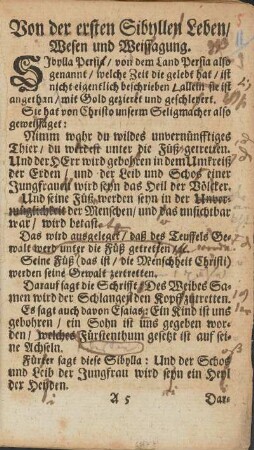 Von der ersten Sibyllen Leben/
Wesen und Weissagung.
SIbylla Persia/ von dem Land Persia also
genannt/ welche Zeit die gelebt hat/ ist
nicht eigentlich beschrieben/ allein sie ist
angethan/ mit Gold gezieret und geschleyert.
Sie hat von Christo unserm Seligmacher also
geweissaget:
Nimm wahr du wildes unvernünfftiges
Thier/ du werdest unter die Füß getretten.
Und der HErr wird gebohren in dem Umkreiß
der Erden/ und der Leib und Schos einer
Jungfrauen wird seyn das Heil der Völcker.
Und seine Füß werden seyn in der Unver-
müglichkeit der Menschen/ und das unsichtbar
war/ wird betast.
Das wird ausgelegt/ daß des Teuffels Ge-
walt werd unter die Füß getretten/
Seine Füß (das ist/ die Menschheit Christi)
werden seine Gewalt zertretten.
Darauf sagt die Schrifft: Des Weibes Sa-
men wird der Schlangen den Kopff zutretten.
Es sagt auch davon Esaias: Ein Kind ist uns
gebohren/ ein Sohn ist uns gegeben wor-
den/ welches Fürstenthum gesetzt ist auf sei-
ne Achseln.
Fürter sagt diese Sibylla: Und der Schos
und Leib der Jungfrau wird seyn ein Heyl
der Heyden.
A 5 Dar-